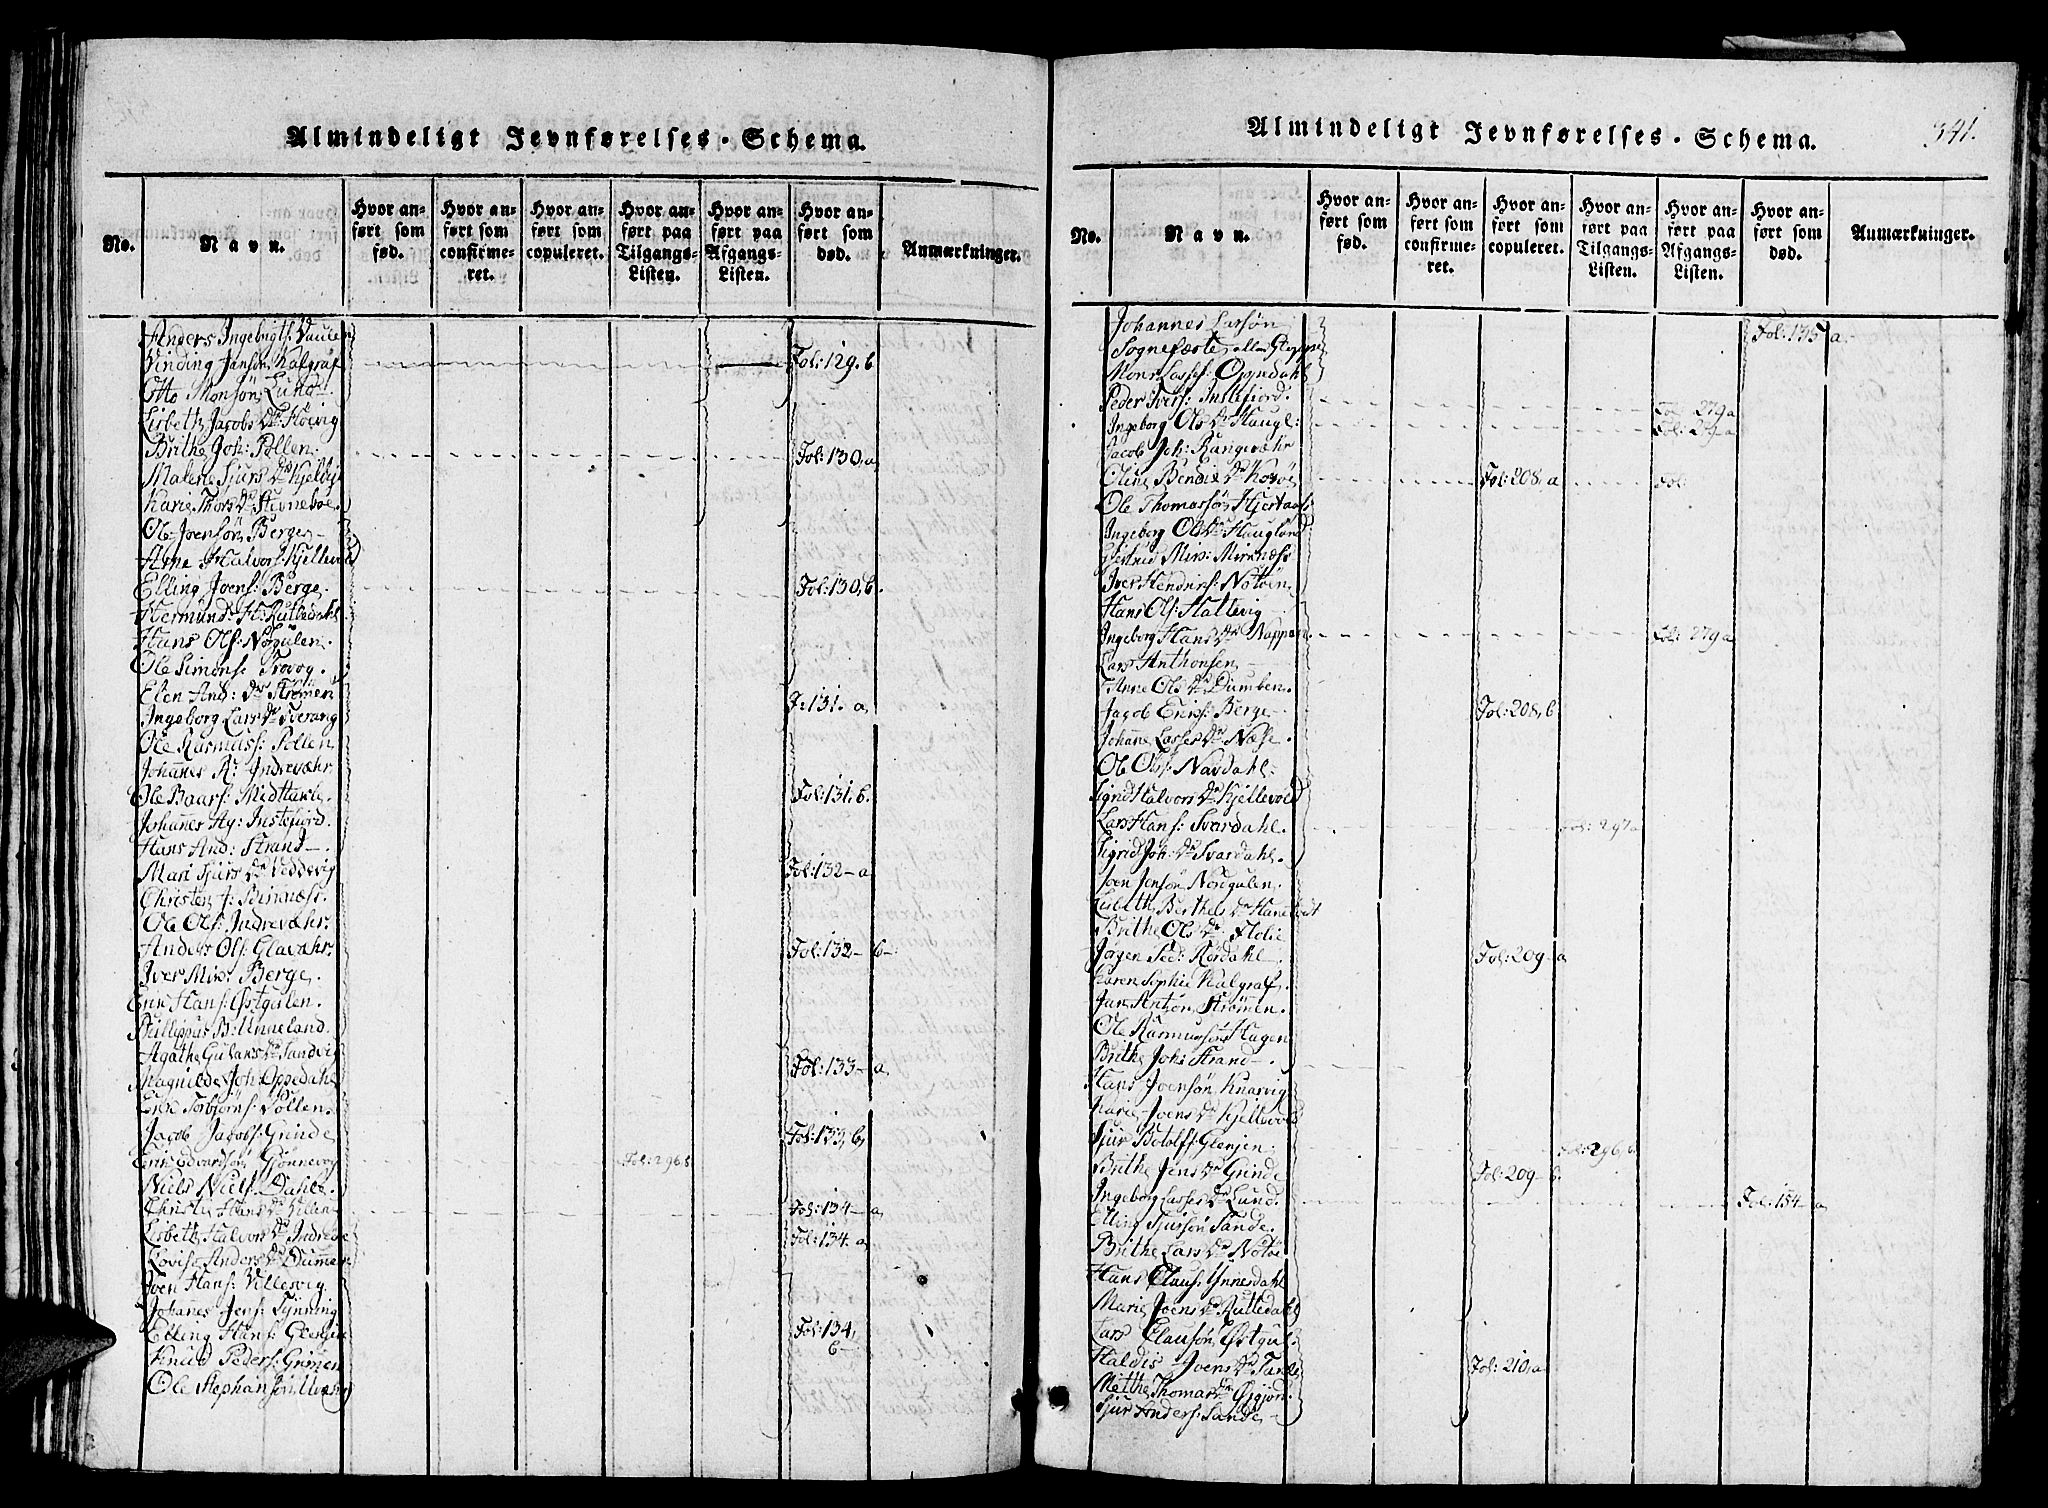 Almindeligt Jevnførelses-Schema.
No.
Navn.
Hvor anført som fød.
Hvor anført som confirmeret.
Hvor anført som copuleret.
Hvor anført paa Tilgangs-Listen.
Hvor anført paa Afgangs-Listen.
Hvor anført som død.
Anmærkninger.
Anders Ingebrigts:
Vinding Jansøn Kalgraf Fol: 129. b
Otto Monsøn Lund
Lisbeth Jacobs Dr Høivig
Brithe Joh: Pollen. Fol: 130, a
Malene Sjurs Dr
Karie Thors Dr Stevneboe.
Ole Joensøn Berge
Arne Halvors: Kjellevold
Elling Joens: Berge. Fol: 130, b.
Hermund H: Rutledahl
Hans Ols: Nøgulen.
Ole Simons:
Elen And: Dr Strømen F: 131. a
Ingeborg Lars Dr Sverang
Ole Rasmuss: Pollen
Johannes R: Indrevæhr
Ole Baars: Midtkarle Fol: 131. b.
Johannes Ag: Instefiord.
Hans And: Strand
Mari Sjurs Dr Fol: 132 - a
Christen J: Birknæss.
Ole Ols: Indrevæhr.
Anders Ols: Glavæhr. Fol: 132 - b -
Iver Mix: Berge.
Erik Hans: Østgulen.
Phillippus B: Unneland.
Agathe Gulans Dr Sandvig Fol: 133 - a
Magnilde Joh: Oppedahl
Erik Torbjørns: Vollen.
Jacob Jacobs: Grinde Fol: 133, b,
Erik Edvardsøn Gjønnevog Fol: 296 b
Niels Niels: Dahle.
Christe Hans Dr Fol: 134 - a
Lisbeth Halvors Dr Indrebøe Fol: 134. a
Lovise Anders Dr Dummen
Joen Hans: Villesvig
Johannes Jens: Tynning
Elling Hans: Glenjen Fol: 134, b -
Knud Peders: Grimen
Ole Stephansøn
Almindeligt Jevnførelses-Schema.
341.
No.
Navn.
Hvor anført som fød.
Hvor anført som confirmeret.
Hvor anført som copuleret.
Hvor anført paa Tilgangs-Listen.
Hvor anført paa Afgangs-Listen.
Hvor anført som død.
Anmærkninger.
Johannes Larsøn Fol: 135 a
Sognefæster
Mons Lasses: Opgndahl
Peder Ivers: Instefiord. Fol: 279 a
Ingeborg Ols Dr Haugl: Fol: 279 a
Jacob Joh: Rangevæhr
Oline Bendix Dr Fol: 208, a Fol:
Ole Thomassøn Hjertaas
Ingeborg Ols Dr Haugland
Gertrud Mix: Mirknæss
Iver Hendriks: Notøen
Hans Ols: Hallvig
Ingeborg Hans Dr Nappen Fol: 279 a
Lars Anthonsen
Anne Ols Dr Dumben.
Jacob Eriks: Berge Fol: 208, b.
Johanne Lasses Dr Næsse.
Ole Ols: Navdahl
Signe Halvors Dr Kjellevold
Lars Hans: Svardahl. Fol: 297 a
Sigrid Joh: Dr Svardahl.
Joen Jensøn Nordgulen.
Lisbeth Berthels Dr
Brithe Ols Dr Flolie
Jøgen Sed: Rørdahl Fol: 209 - a
Karen Sophie Kalgraf.
Jan Antzøn Strømen.
Ole Rasmussøn Hagen
Brithe Joh: Strand.
Hans Joensøn Knarvig
Karie Joens Dr Kjellevold
Sjur Botolfs: Glenjen: Fol: 296, b
Brithe Jens Dr Grinde Fol: 209 - b.
Ingeborg Lasses Dr Lund. Fol: 154 - a
Elling Sjursøn Sande.
Brithe Lars Dr Notøe
Hans Claus: Ynnesdahl
Marie Joens Dr Rutledahl
Lars Clausøn Østgul-
Haldis Joens Dr Fol: 210, a
Methe Thomas Dr
Sjur Anders: Sande